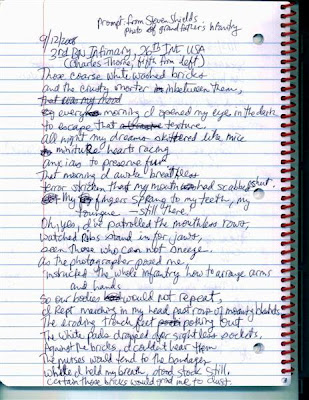 Prompt from Steven Shields
photo of grandfather's infantry
9/12/2008
3rd BN Infirmary, 26th INF USA
(Charles Thorne, fifth from left)
Those coarse white washed bricks
and the crusty mortar in between them,
that was my mood
every morning I opened my eye in the dark
to escape that texture.
All night my dreams skittered like mice
miniature hearts racing
anxious to preserve fur.
That morning I awoke breathless
terror stricken that my mouth had scabbed shut.
My fingers sprang to my teeth, my
tongue — still there.
Oh, yes, I'd patrolled the mouthless rows,
watched ribs stand in for jaws,
seen those who can not sneeze.
As the photographer posed me
instructed the whole infantry how to arrange arms
and hands
so our bodies would not repeat,
I kept marching in my head past rows of moving blankets
the eroding trench feet poking out
The white pads draped for sightless pockets,
Against the bricks, I couldn't hear them
The nurses would tend to the bandages
while I held my breath, stood stock still,
certain those bricks would grind me to dust.